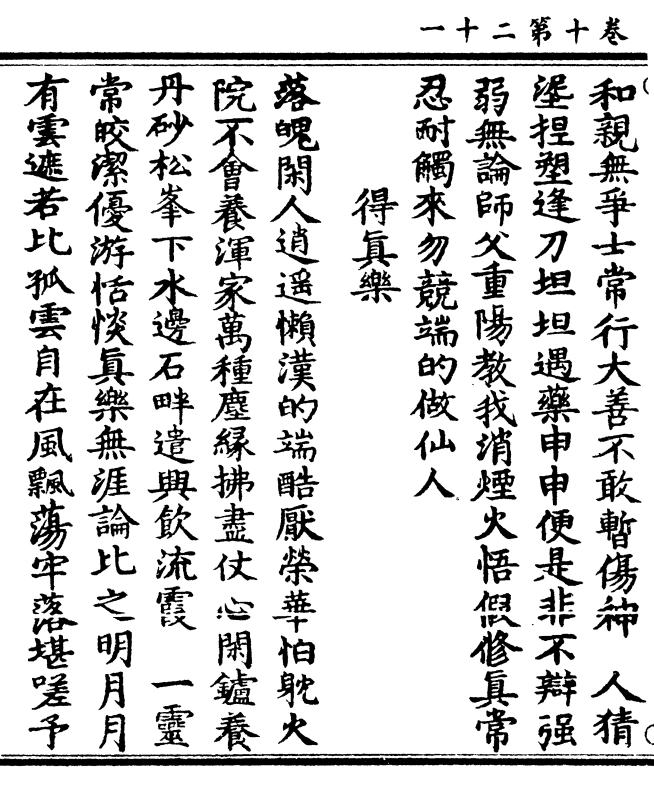 卷十第二十一
和親無爭士常行大善不敢暫傷神　人猜
埿捏塑逢刀坦坦遇藥申申便是非不辯强
弱無論師父重陽教我消煙火悟假修真常
忍耐觸來勿競端的做仙人
得真樂
落魄閑人逍遥懶漢的端酷厭榮華怕躭火
院不會養渾家萬種塵緣拂盡仗心閑鑪養
丹砂松峯下水邊石畔遣興飲流霞　一靈
常皎潔優游恬惔真樂無涯論比之明月月
有雲遮若比孤雲自在風飄蕩牢落堪嗟予